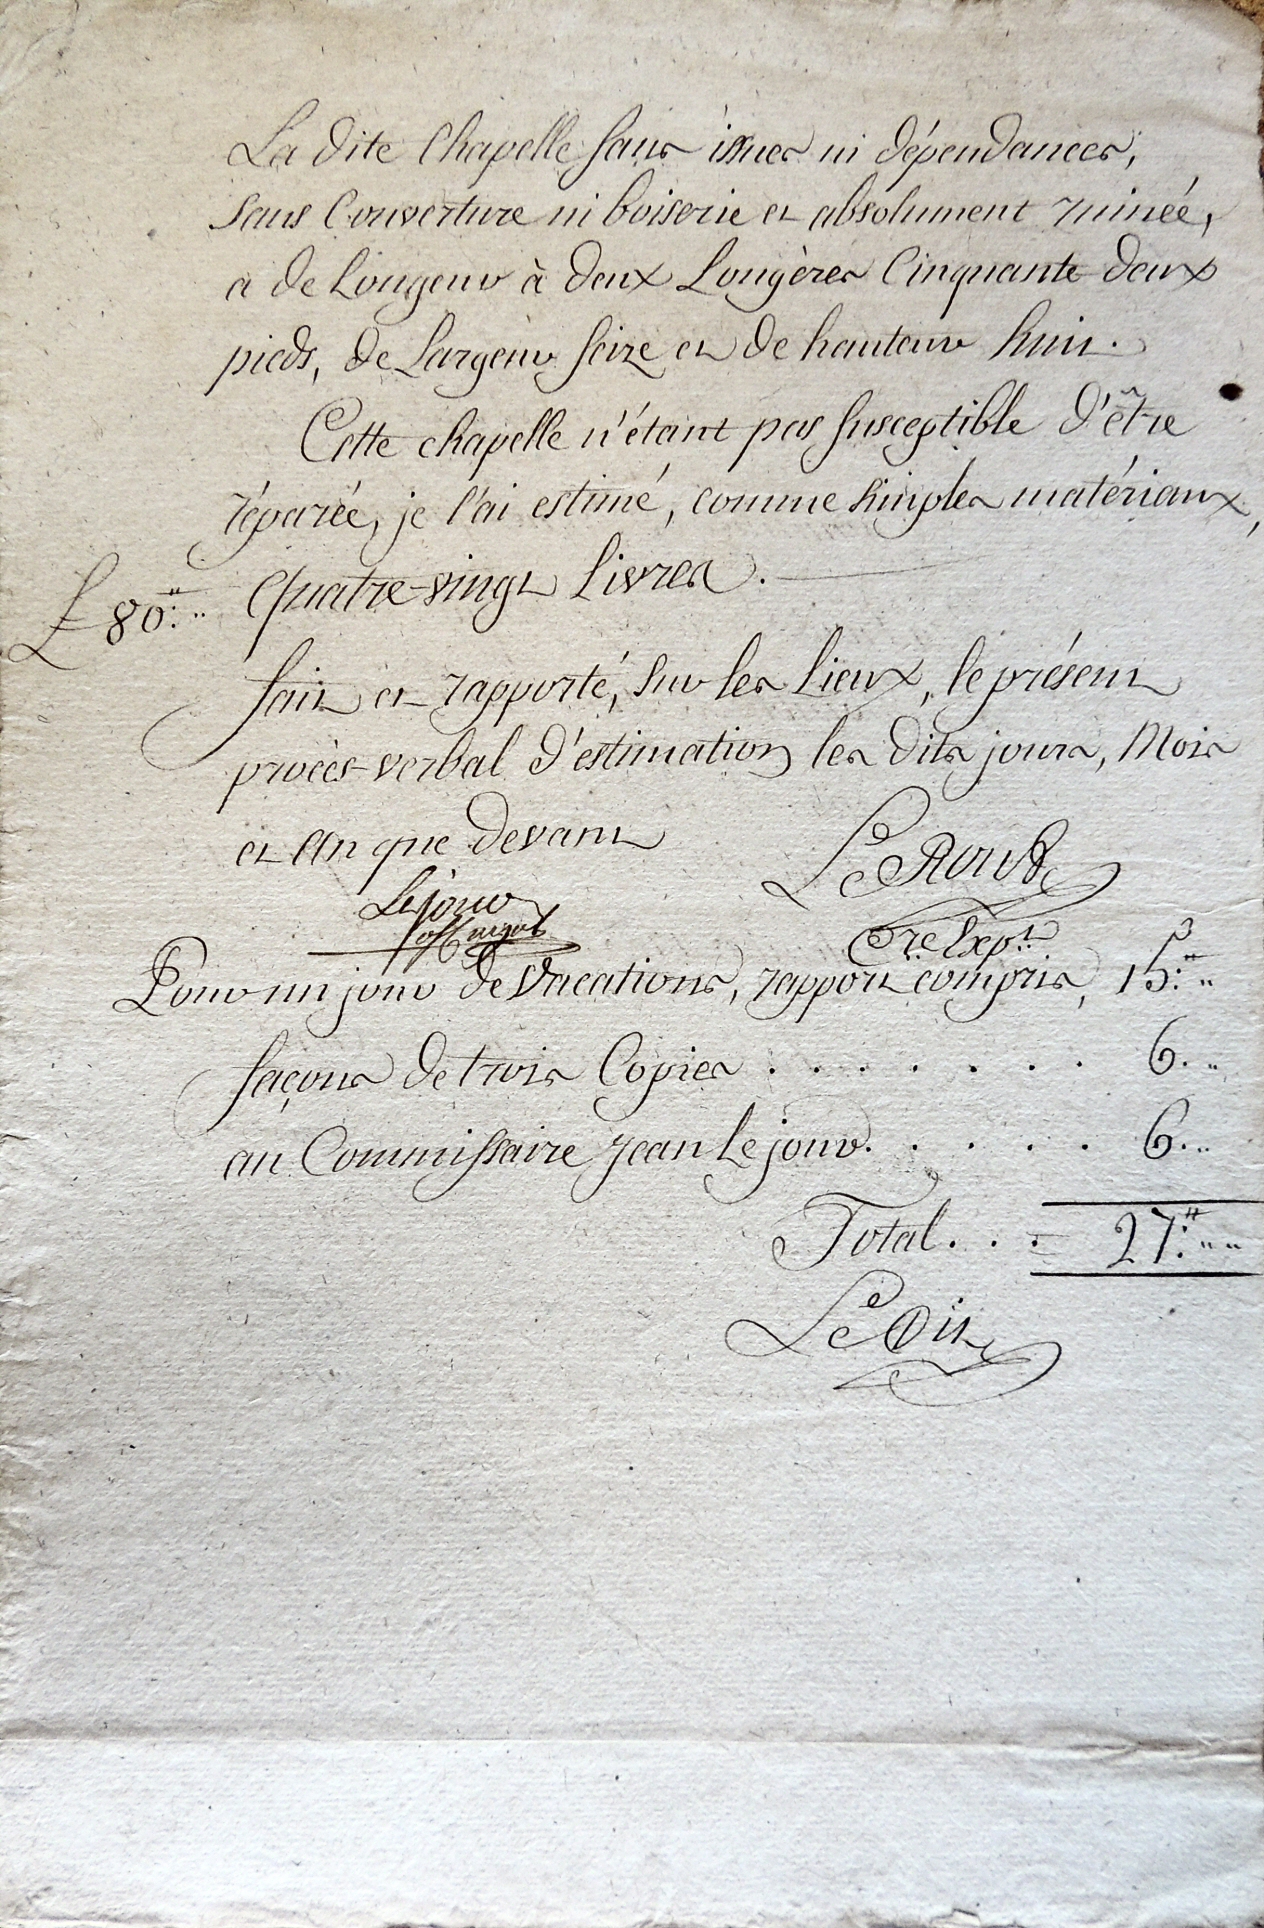 La dite Chapelle sans issues ni dépendances,
sans Couverture ni boiserie et absolument ruinée,
a de Longeur à deux Longères Cinquante deux
pieds, de Largeur seize et de hauteur huit.
Cette chapelle n'étant pas susceptible d'être
réparée, je l'ai estimé, comme simples matériaux,
£ 80:" " quatre-vingt Livres.
fait et rapporté, sur les Lieux, le présent
procès-verbal d'estimation les dits jours, Mois
et an que devant
Le Roux
Lejour
off. mpal
Cre Expt
Pour un jour de Vacations, rapport compris, 15:" "
façons de trois Copies . . . . . . . . 6. "
au Commissaire Jean Le jour . . . . . 6. "
Total . . . 27:" " "